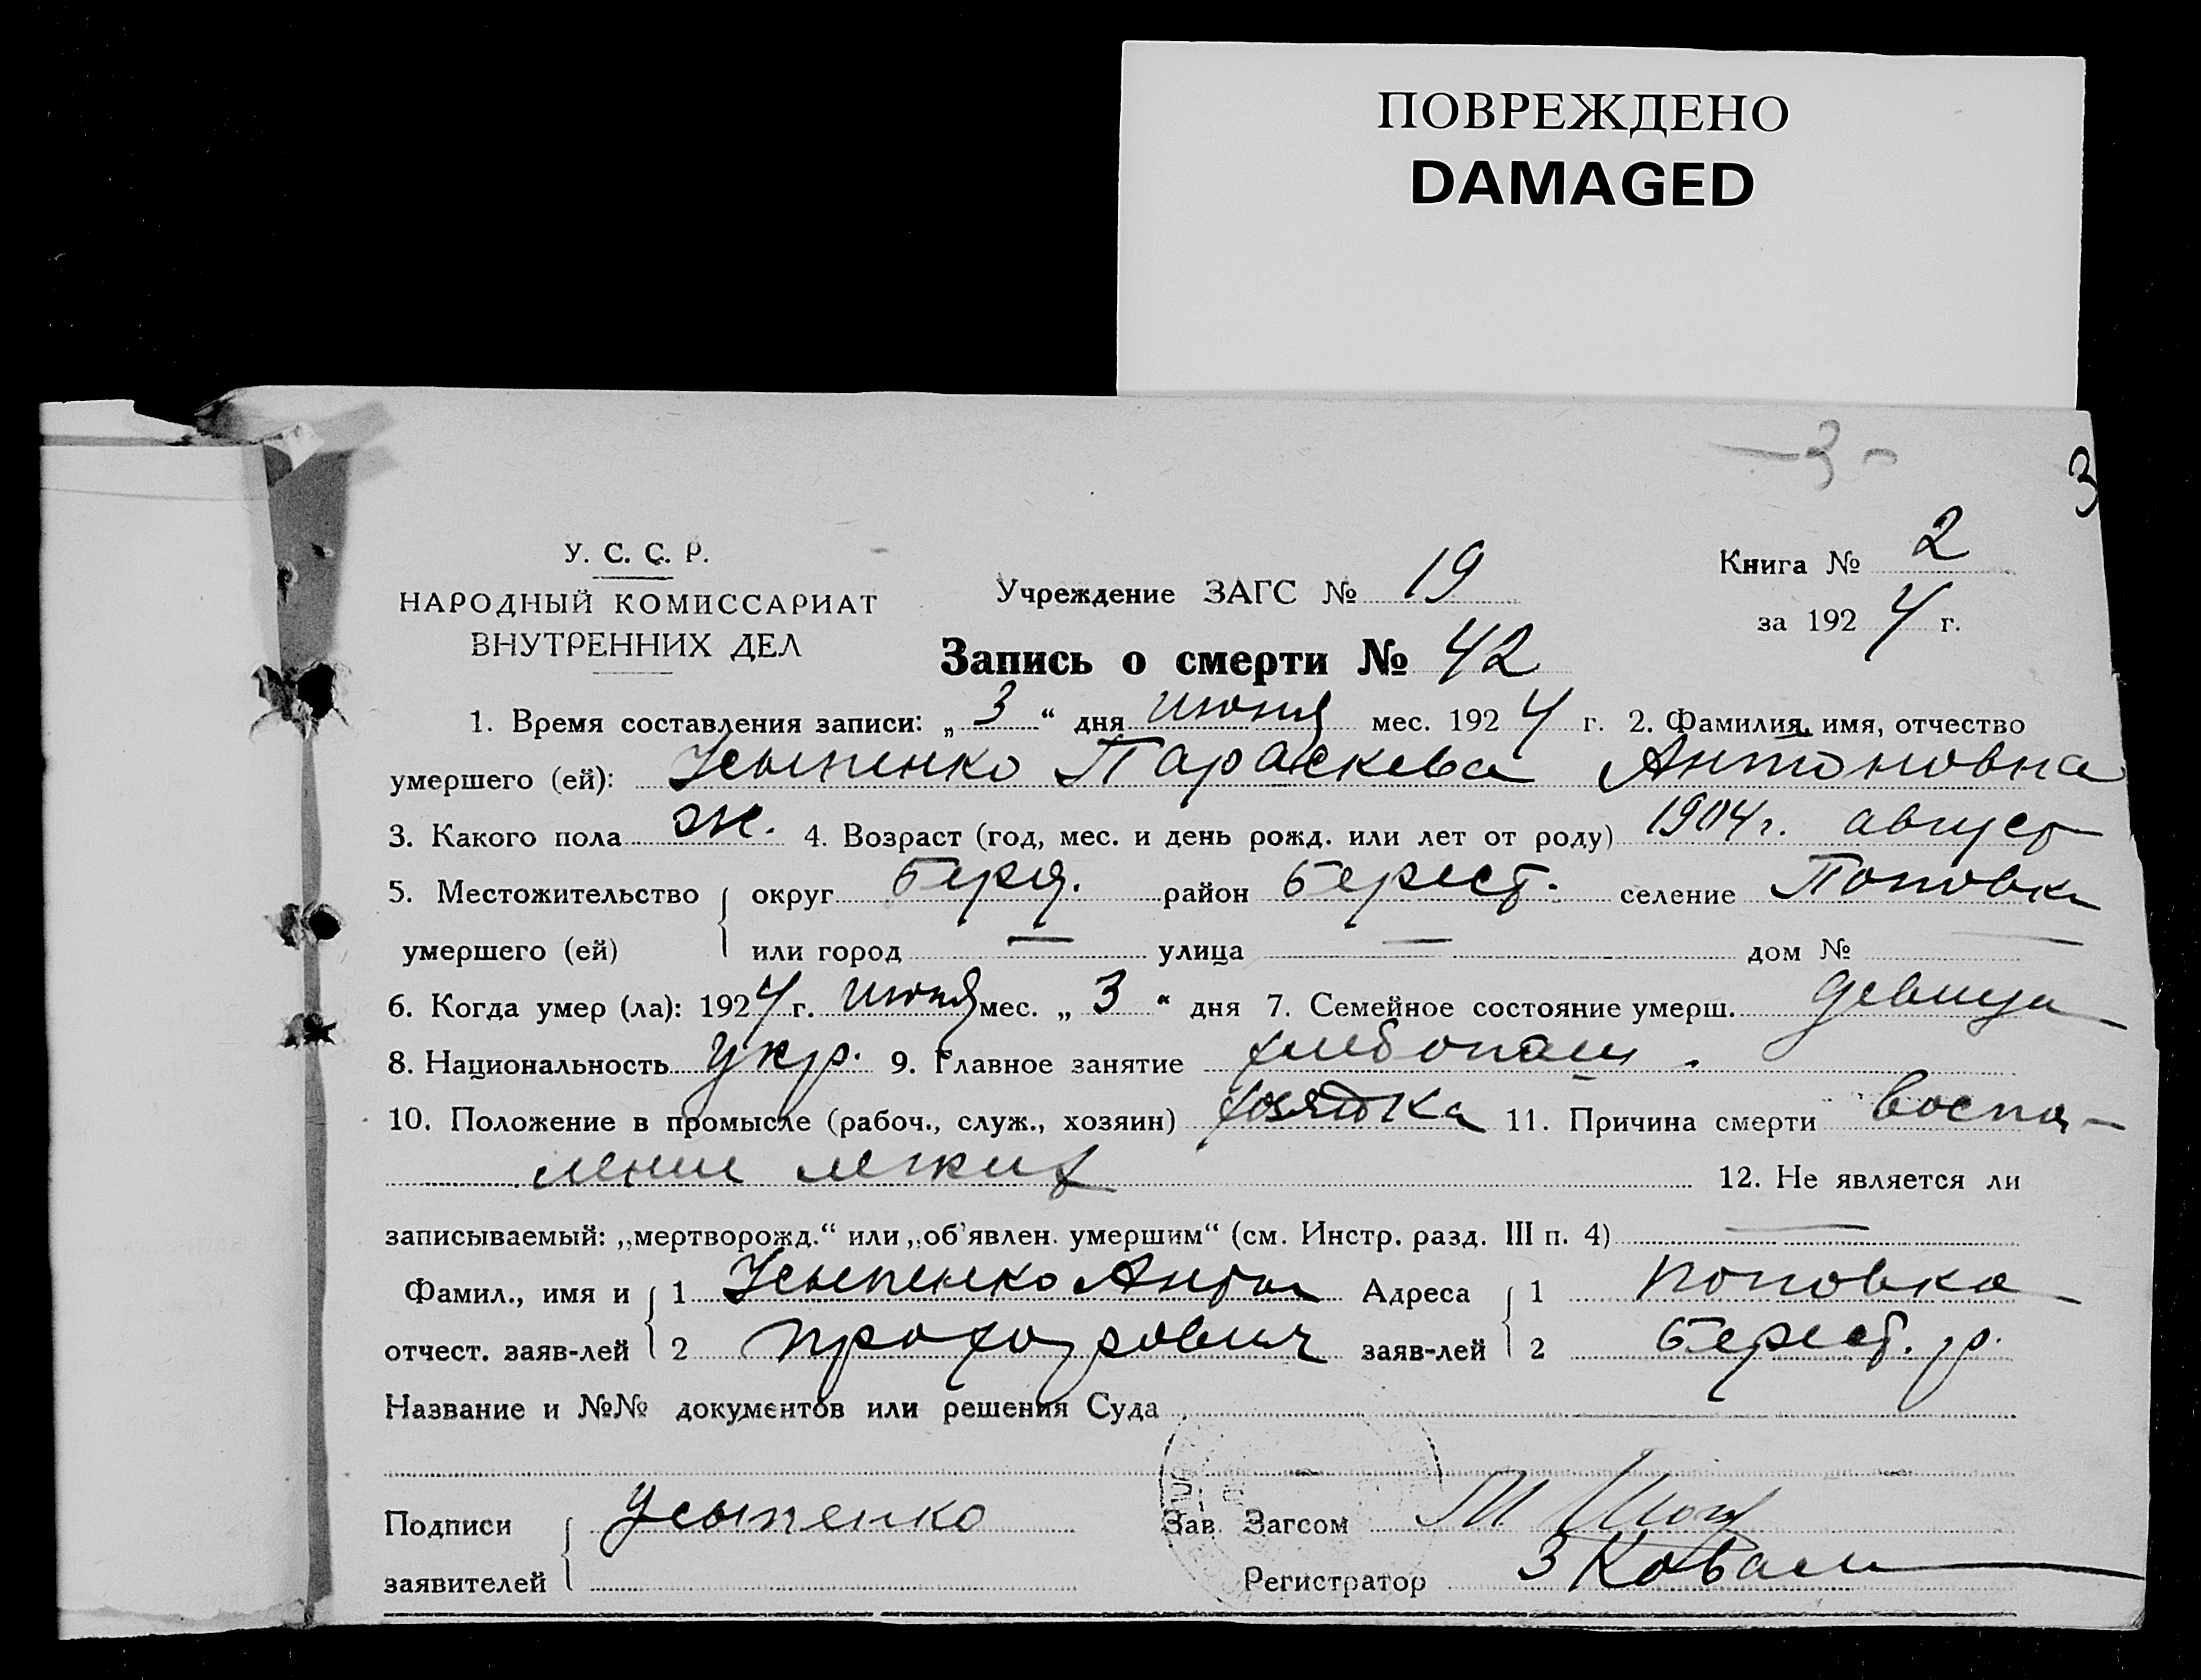 ПОВРЕЖДЕНО
DAMAGED
— 3 -
3
У. С. С. Р.
НАРОДНЫЙ КОМИССАРИАТ
ВНУТРЕННИХ ДЕЛ
Учреждение ЗАГС № 19
Книга № 2
за 1924 г.
Запись о смерти № 42
1. Время составления записи: „ 3 “ дня июня мес. 1924 г. 2. Фамилия, имя, отчество
умершего (ей): Усыпенко Параскева Антоновна
3. Какого пола ж. 4. Возраст (год, мес. и день рожд. или лет от роду) 1904 г. август
5. Местожительство округ Берд. район Берест. селение Поповка
умершего (ей) или город — улица — дом № —
6. Когда умер (ла): 1924 г. июня мес. „ 3 “ дня 7. Семейное состояние умерш. девица
8. Национальность укр. 9. Главное занятие хлебопаш.
10. Положение в промысле (рабоч., служ., хозяин) 11. Причина смерти воспа-
ление легких 12. Не является ли
записываемый: „мертворожд.“ или „об'явлен. умершим“ (см. Инстр. разд. III п. 4) —
Фамил., имя и 1 Усыпенко Антон Адреса 1 Поповка
отчест. заяв-лей 2 Прохорович заяв-лей 2 Берест. р.
Название и №№ документов или решения Суда —
Подписи Усыпенко Зав. Загсом
заявителей Регистратор З Коваль